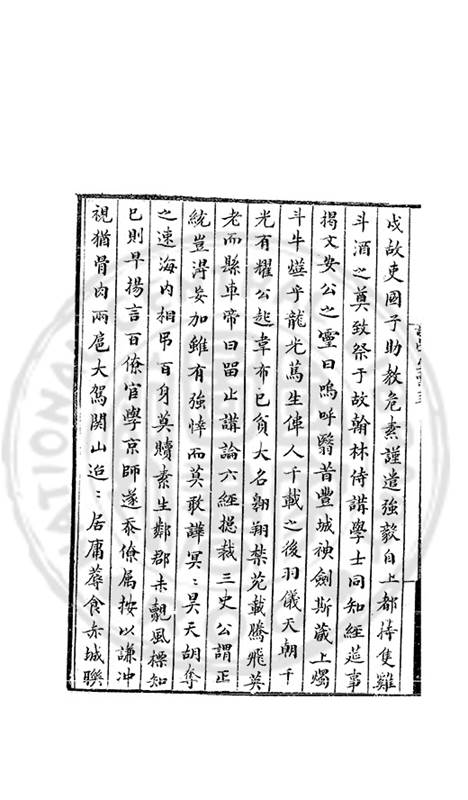 戍故吏國子助教危素謹遣強毅自上都持隻雞
斗酒之奠致祭于故翰林侍講學士同知經筵事
揭文安公之靈曰嗚呼翳昔豐城神劍斯藏上燭
斗牛燁乎龍光萬生偉人千載之後羽儀天朝千
光有耀公起韋布已負大名翱翔禁苑載騰飛英
老而縣車帝曰留止講論六經揔裁三史公謂正
統豈得妄加雖有強悍而莫敢譁冥冥昊天胡奪
之速海内相弔百身莫贖素生鄰郡未覿風標知
已則早揚言百僚官學京師遂忝僚屬接以謙沖
視猶骨肉兩扈大駕関山迢迢居庸蓐食赤城聯